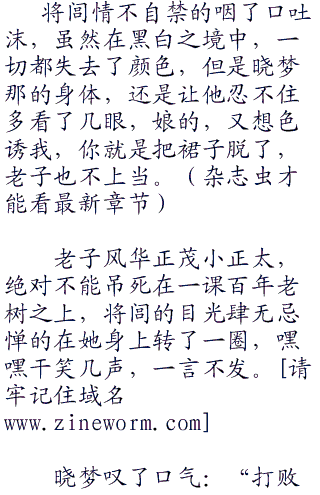 将闾情不自禁的咽了口吐
沫，虽然在黑白之境中，一
切都失去了颜色，但是晓梦
那的身体，还是让他忍不住
多看了几眼，娘的，又想色
诱我，你就是把裙子脱了，
老子也不上当。（杂志虫才
能看最新章节）
老子风华正茂小正太，
绝对不能吊死在一课百年老
树之上，将闾的目光肆无忌
惮的在她身上转了一圈，嘿
嘿干笑几声，一言不发。[请
牢记住域名
www.zineworm.com]
晓梦叹了口气：“打败